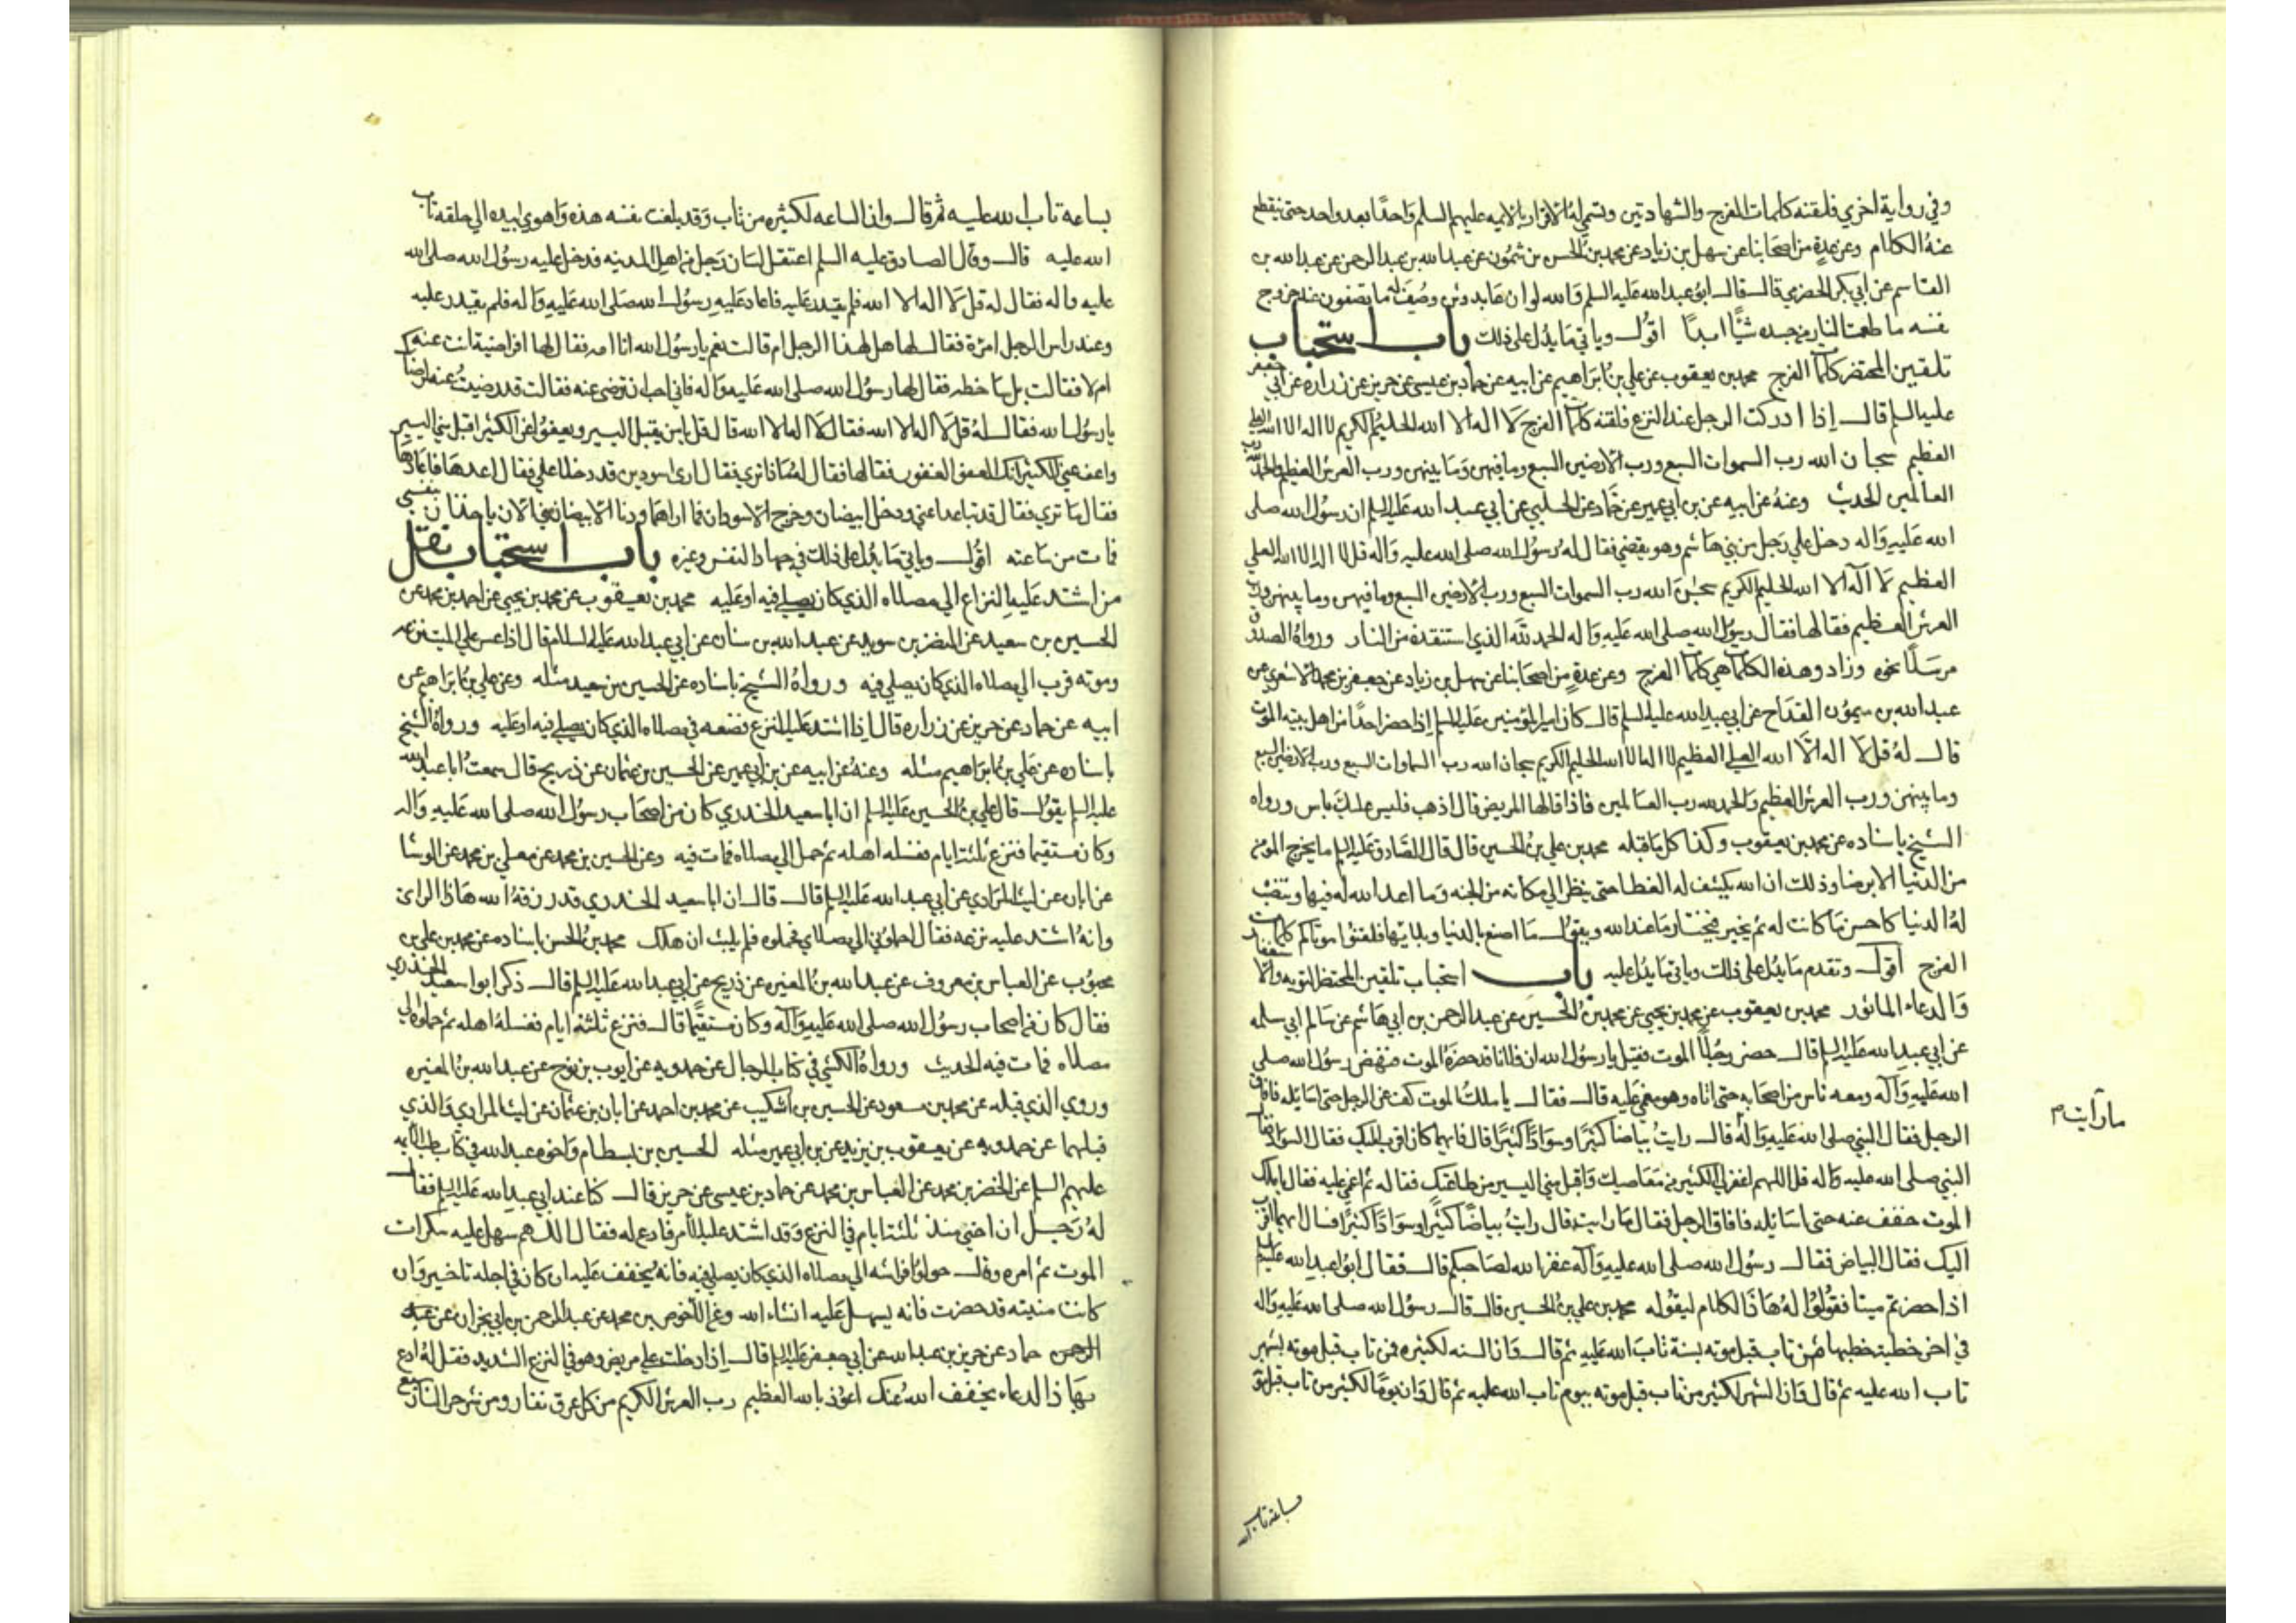 وفي رواية اخري فلقنه كلمات الفرج والشهادتين وتسمي له الاقرار بالايمه عليهم السلم واحدًا بعد واحد حتى ينقطع
عنهُ الكلام وعن عدةٍ من اصحابنا عن سهل بن زياد عن محمد بن الحسن بن شمُون عن عبد الله بن عبد الرحمن عن عبد الله بن
القاسم عن ابي بكر الحضرمي قال قال ابوُ عبد الله عليه السلم والله لو ان عابد وثن وصُف له ما تصفون عند خروج
نفسه ما طعمت النار من جسده شيًا ابدًا اقوُل وياتي ما يدُل على ذلك باب استحباب
تلقين المحتضر كلمات الفرج محمد بن يعقوب عن علي بنُ ابراهيم عن ابيه عن حماد بن عيسى عن حريز عن زراره عن ابي جعفر
عليه السلم قال إذا ادركت الرجل عند النزع فلقنه كلمات الفرج لا اله الا الله الحليُم الكريم لا اله الا الله العلي
العظيم سبحان الله رب السموات السبع ورب الارضين السبع وما فيهن وما بينهن ورب العرش العظيم والحمد لله رب
العالمين الحديث وعنهُ عن ابيه عن بن ابي عمير عن حماد عن الحلبي عن ابي عبد الله عليه السلم ان رسوُل الله صلى
الله عليه واله دخل علي رجل من بني هاشم وهو يقضي فقال له رسوُل الله صلى الله عليه واله قل لا اله الا الله العلي
العظيم لا اله الا الله الحليم الكريم سبحن الله رب السموات السبع ورب الارضين السبع وما فيهن وما بينهن ورب
العرش العظيم فقالها فقال رسوُل الله صلى الله عليه واله الحمد لله الذي استنقذه من النار ورواهُ الصدوق
مرسلًا نحوه وزاد وهذه الكلمات هي كلمات الفرج وعن عدةٍ من اصحابنا عن سهل بن زياد عن جعفر بن محمد الاشعري عن
عبد الله بن ميموُن القداح عن ابي عبد الله عليه السلم قال كان امير المؤمنين عليه السلم إذا حضر احدًا من اهل بيته الموت
قال لهُ قل لا اله الا الله العلي العظيم لا اله الا الله الحليم الكريم سبحان الله رب السماوات السبع ورب الارضين السبع
وما بينهن ورب العرش العظيم والحمد لله رب العالمين فاذا قالها المريض قال اذهب فليس عليك باس ورواه
الشيخ باسناده عن محمد بن يعقوب وكذا كل ما قبله محمد بن علي بنُ الحسين قال قال الصادق عليه السلم ما يخرج المؤمن
من الدنيا الا برضا وذلك ان الله يكشف له الغطا حتى ينظر الي مكانه من الجنه وما اعد الله له فيها وتنصب
لهُ الدنيا كاحسن ما كانت له ثم يخير فيختار ما عند الله ويقوُل ما اصنع بالدنيا وبلايها فلقنوُا موتاكم كلمات
الفرج اقوُل وتقدم ما يدُل على ذلك وياتي ما يدُل عليه باب استحباب تلقين المحتضر التوبه والاستغفار
والدعاء الماثور محمد بن يعقوب عن محمد بن يحيى عن محمد بنُ الحسين عن عبد الرحمن بن ابي هاشم عن سالم ابي سلمه
عن ابي عبد الله عليه السلم قال حضر رجُلًا الموت فقيل يا رسوُل الله ان فلانا قد حضرهُ الموت فنهض رسوُل الله صلى
الله عليه واله ومعه ناس من اصحابه حتى اتاه وهو مغمي عليه قال فقال يا ملكُ الموت كف عن الرجل حتى اسائله فافاق
الرجل فقال النبي صلى الله عليه واله ما رايت قال رايتُ بياضا كثيرًا وسوادًا كثيرًا قال فايهما كان اقرب اليك فقال السواد فقال
النبي صلى الله عليه واله قل اللهم اغفر لي الكثير من معاصيك واقبل مني اليسير من طاعتك فقاله ثم اغمي عليه فقال يا ملك
الموت خفف عنه حتى اسائله فافاق الرجل فقال ما رايت قال رايتُ بياضًا كثيًرا وسوادًا كثيرًا قال ايهما اقرب
اليك فقال البياض فقال رسوُل الله صلى الله عليه واله غفر الله لصاحبكم قال فقال ابوُ عبد الله عليه السلم
اذا حضرتم ميتا فقوُلوُا لهُ هاذا الكلام ليقوُله محمد بن علي بنُ الحسين قال قال رسوُل الله صلى الله عليه واله
في اخر خطبة خطبها من تاب قبل موته بسنة تاب الله عليه ثم قال وان السنه لكثيره من تاب قبل موته بشهر
تاب الله عليه ثم قال وان الشهر لكثير من تاب قبل موته بيوم تاب الله عليه ثم قال وان يومًا لكثير من تاب قبل موته
ما رايت م
بساعة تاب الله
بساعه تاب الله عليه ثم قال وان الساعه لكثيره من تاب وقد بلغت نفسه هذه واهوي بيده الي حلقه تاب
الله عليه قال وقال الصادق عليه السلم اعتقل لسان رجل من اهل المدينه فدخل عليه رسوُل الله صلى الله
عليه واله فقال له قل لا اله الا الله فلم يقدر عليه فاعاد عليه رسوُل الله صلى الله عليه واله فلم يقدر عليه
وعند راس الرجل امرة فقال لها هل لهذا الرجل ام قالت نعم يا رسوُل الله انا امه فقال لها افراضية انت عنه
ام لا فقالت بل ساخطه فقال لها رسوُل الله صلى الله عليه واله فاني احب ان ترضى عنه فقالت قد رضيتُ عنه لرضاك
يا رسوُل الله فقال لهُ قل لا اله الا الله فقال لا اله الا الله قال قل يا من يقبل اليسير ويعفوُ عن الكثير اقبل مني اليسير
واعف عني الكثير انك العفو الغفوُر فقالها فقال له ماذا تري فقال اري اسودين قد دخلا علي فقال اعدها فاعادها
فقال ما تري فقال قد تباعدا عني ودخل ابيضان وخرج الاسودان فما اراهما ودنا الابيضان مني الان ياخذان بنفسي
فمات من ساعته اقوُل وياتي ما يدُل على ذلك في جهاد النفس وغيره باب استحباب نقل
من اشتد عليه النزاع الي مصلاه الذي كان يصلي فيه او عليه محمد بن يعقوب عن محمد بن يحيى عن احمد بن محمد عن
الحسين بن سعيد عن النضر بن سويد عن عبد الله بن سنان عن ابي عبد الله عليه السلام قال اذا عسر علي الميت نزعه
وموته قرب الي مصلاه الذي كان يصلي فيه ورواهُ الشيخ باسناده عن الحسين بن سعيد مثله وعن علي بنُ ابراهيم عن
ابيه عن حماد عن حريز عن زراره قال إذا اشتد عليه النزع فضعه في مصلاه الذي كان يصلي فيه او عليه ورواهُ الشيخ
باسناده عن علي بنُ ابراهيم مثله وعنهُ عن ابيه عن بن ابي عمير عن الحسين بن عثمان عن ذريح قال سمعتُ ابا عبد الله
عليه السلم يقوُل قال علي بنُ الحسين عليه السلم ان ابا سعيد الخدري كان من اصحاب رسوُل الله صلى الله عليه واله
وكان مستقيما فنزع ثلثة ايام فغسله اهله ثم حمل الي مصلاه فمات فيه وعن الحسين بن محمد عن معلي بن محمد عن الوشا
عن ابان عن ليث المرادي عن ابي عبد الله عليه السلم قال قال ان ابا سعيد الخدري قد رزقهُ الله هاذا الراي
وانهُ اشتد عليه نزعه فقال احملوني الي مصلاي فحملوه فلم يلبث ان هلك محمد بنُ الحسن باسناده عن محمد بن علي بن
محبوُب عن العباس بن معروف عن عبد الله بنُ المغيره عن ذريح عن ابي عبد الله عليه السلم قال ذكر ابوا سعيد الخدري
فقال كان من اصحاب رسوُل الله صلى الله عليه واله وكان مستقيًما قال فنزع ثلثة ايام فغسلهُ اهله ثم حملوه الي
مصلاه فمات فيه الحديث ورواهُ الكشي في كتاب الرجال عن حمدويه عن ايوب بن نوح عن عبد الله بنُ المغيره
وروي الذي قبله عن محمد بن مسعود عن الحسين بن اشكيب عن محمد بن احمد عن ابان بن عثمان عن ليث المرادي والذي
قبلهما عن حمدويه عن يعقوب بن يزيد عن بن ابي عمير مثله الحسين بن بسطام واخوه عبد الله في كتاب طب الايمه
عليهم السلم عن الخضر بن محمد عن العباس بن محمد عن حماد بن عيسى عن حريز قال كنا عند ابي عبد الله عليه السلم فقال
لهُ رجل ان اخي منذ ثلثة ايام في النزع وقد اشتد عليه الامر فادع له فقال اللهم سهل عليه سكرات
الموت ثم امره وقال حولوُا فراشه الي مصلاه الذي كان يصلي فيه فانهُ يُخفف عليه ان كان في اجله تاخير وان
كانت منيته قد حضرت فانه يسهل عليه انشاء الله وعن الاخوص بن محمد عن عبد الرحمن بن ابي نجران عن عبد
الرحمن حماد عن حريز بن عبد الله عن ابي جعفر عليه السلم قال إذا دخلت علي مريض وهو في النزع الشديد فقل لهُ ادع
بهاذا الدعاء يخفف اللهُ عنك اعوُذ بالله العظيم رب العرش الكريم من كل عرق نفار ومن شر حر النار